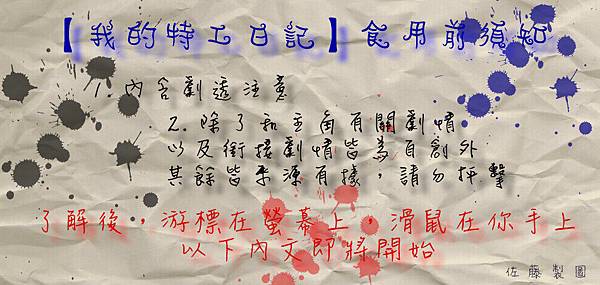 【我的特工日記】食用前須知
1. 內含劇透注意
2. 除了和主角有關劇情
以及銜接劇情皆為自創外
其餘皆來源有據，請勿抨擊
了解後，游標在螢幕上，滑鼠在你手上
以下內文即將開始
佐藤製圖